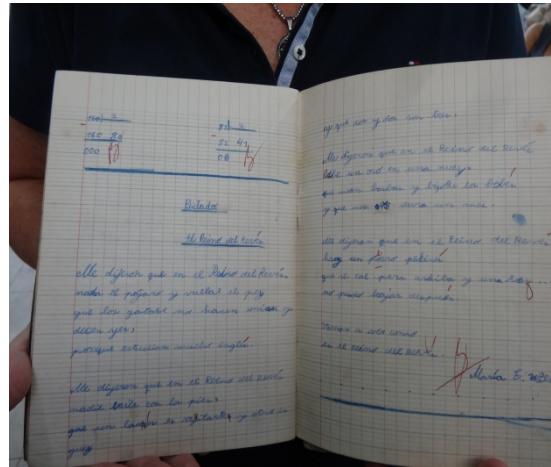 160 2
160 80
000
82 2
82 41
00
Dictado
El Reino del Revés
Me dijeron que en el Reino del Revés
nada el pájaro y vuelva el pez
que los gatos no hacen miau y
dicen yes,
porque estudian mucho inglés.
Me dijeron que en el Reino del Revés
nadie baila con los pies,
que un ladrón es vigilante y otro es
juez
y que dos y dos son tres.
Me dijeron que en el Reino del Revés
cabe un oso en una nuez,
que usan barbas y bigotes los bebés
y que un año dura un mes.
Me dijeron que en el Reino del Revés
hay un perro pekinés
que se cae para arriba y una vez
no pudo bajar después.
Vamos a ver como
es el Reino del Revés.
María E.